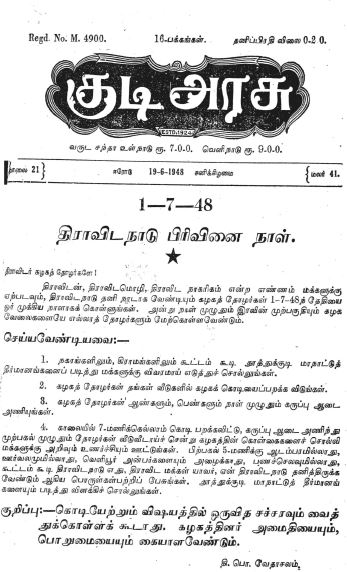 Regd. No. M. 4900. 16-பக்கங்கள். தனிப்பிரதி விலை 0-2-0.
குடி அரசு
ESTD.1924
வருட சந்தா உள்நாடு ரூ. 7-0-0. வெளிநாடு ரூ. 9-0-0.
மாலை 21 } ஈரோடு 19-6-1948 சனிக்கிழமை { மலர் 41.
1—7—48
திராவிடநாடு பிரிவினை நாள்.
திராவிடர் கழகத் தோழர்களே!
திராவிடன், திராவிடமொழி, திராவிட நாகரிகம் என்ற எண்ணம் மக்களுக்கு
ஏற்படவும், திராவிடநாடு தனி நாடாக வேண்டியும் கழகத் தோழர்கள் 1-7-48த் தேதியை
ஓர் முக்கிய நாளாகக் கொள்ளுங்கள். அன்று நாள் முழுதும் இரவின் முற்பகுதியும் கழக
வேலைகளையே எல்லாத் தோழர்களும் மேற்கொள்ளவேண்டும்.
செய்யவேண்டியவை:—
1. நகரங்களிலும், கிராமங்களிலும் கூட்டம் கூடி தூத்துக்குடி மாநாட்டுத்
தீர்மானங்களைப் படித்து மக்களுக்கு விவரமாய் எடுத்துச் சொல்லுங்கள்.
2. கழகத் தோழர்கள் தங்கள் வீடுகளில் கழகக் கொடியைப்பறக்க விடுங்கள்.
3. கழகத் தோழர்கள் ஆண்களும், பெண்களும் நாள் முழுதும் கருப்பு ஆடை
அணியுங்கள்.
4. காலையில் 7-மணிக்கெல்லாம் கொடி பறக்கவிட்டு, கருப்பு ஆடை அணிந்து
முற்பகல் முழுதும் தோழர்கள் வீடுவீடாய்ச் சென்று கழகத்தின் கொள்கைகளைச் சொல்லி
மக்களுக்கு அறிவும் உணர்ச்சியும் ஊட்டுங்கள். பிற்பகல் 5-மணிக்கு ஆடம்பரமில்லாது,
ஊர்வலமுமில்லாது, வெளியூர் அன்பர்களையும் அழைக்காது, பணச்செலவுமில்லாது,
கூட்டம் கூடி திராவிடநாடு எது, திராவிட மக்கள் யாவர், ஏன் திராவிடநாடு தனித்திருக்க
வேண்டும் ஆகிய பொருள்கள்பற்றிப் பேசுங்கள். தூத்துக்குடி மாநாட்டுத் தீர்மானங்
களையும் படித்து விளக்கிச் சொல்லுங்கள்.
குறிப்பு:—கொடியேற்றும் விஷயத்தில் ஒருவித சச்சரவும் வைத்
துக்கொள்ளக் கூடாது. கழகத்தினர் அமைதியையும்,
பொறுமையையும் கையாளவேண்டும்.
தி. பொ. வேதாசலம்,